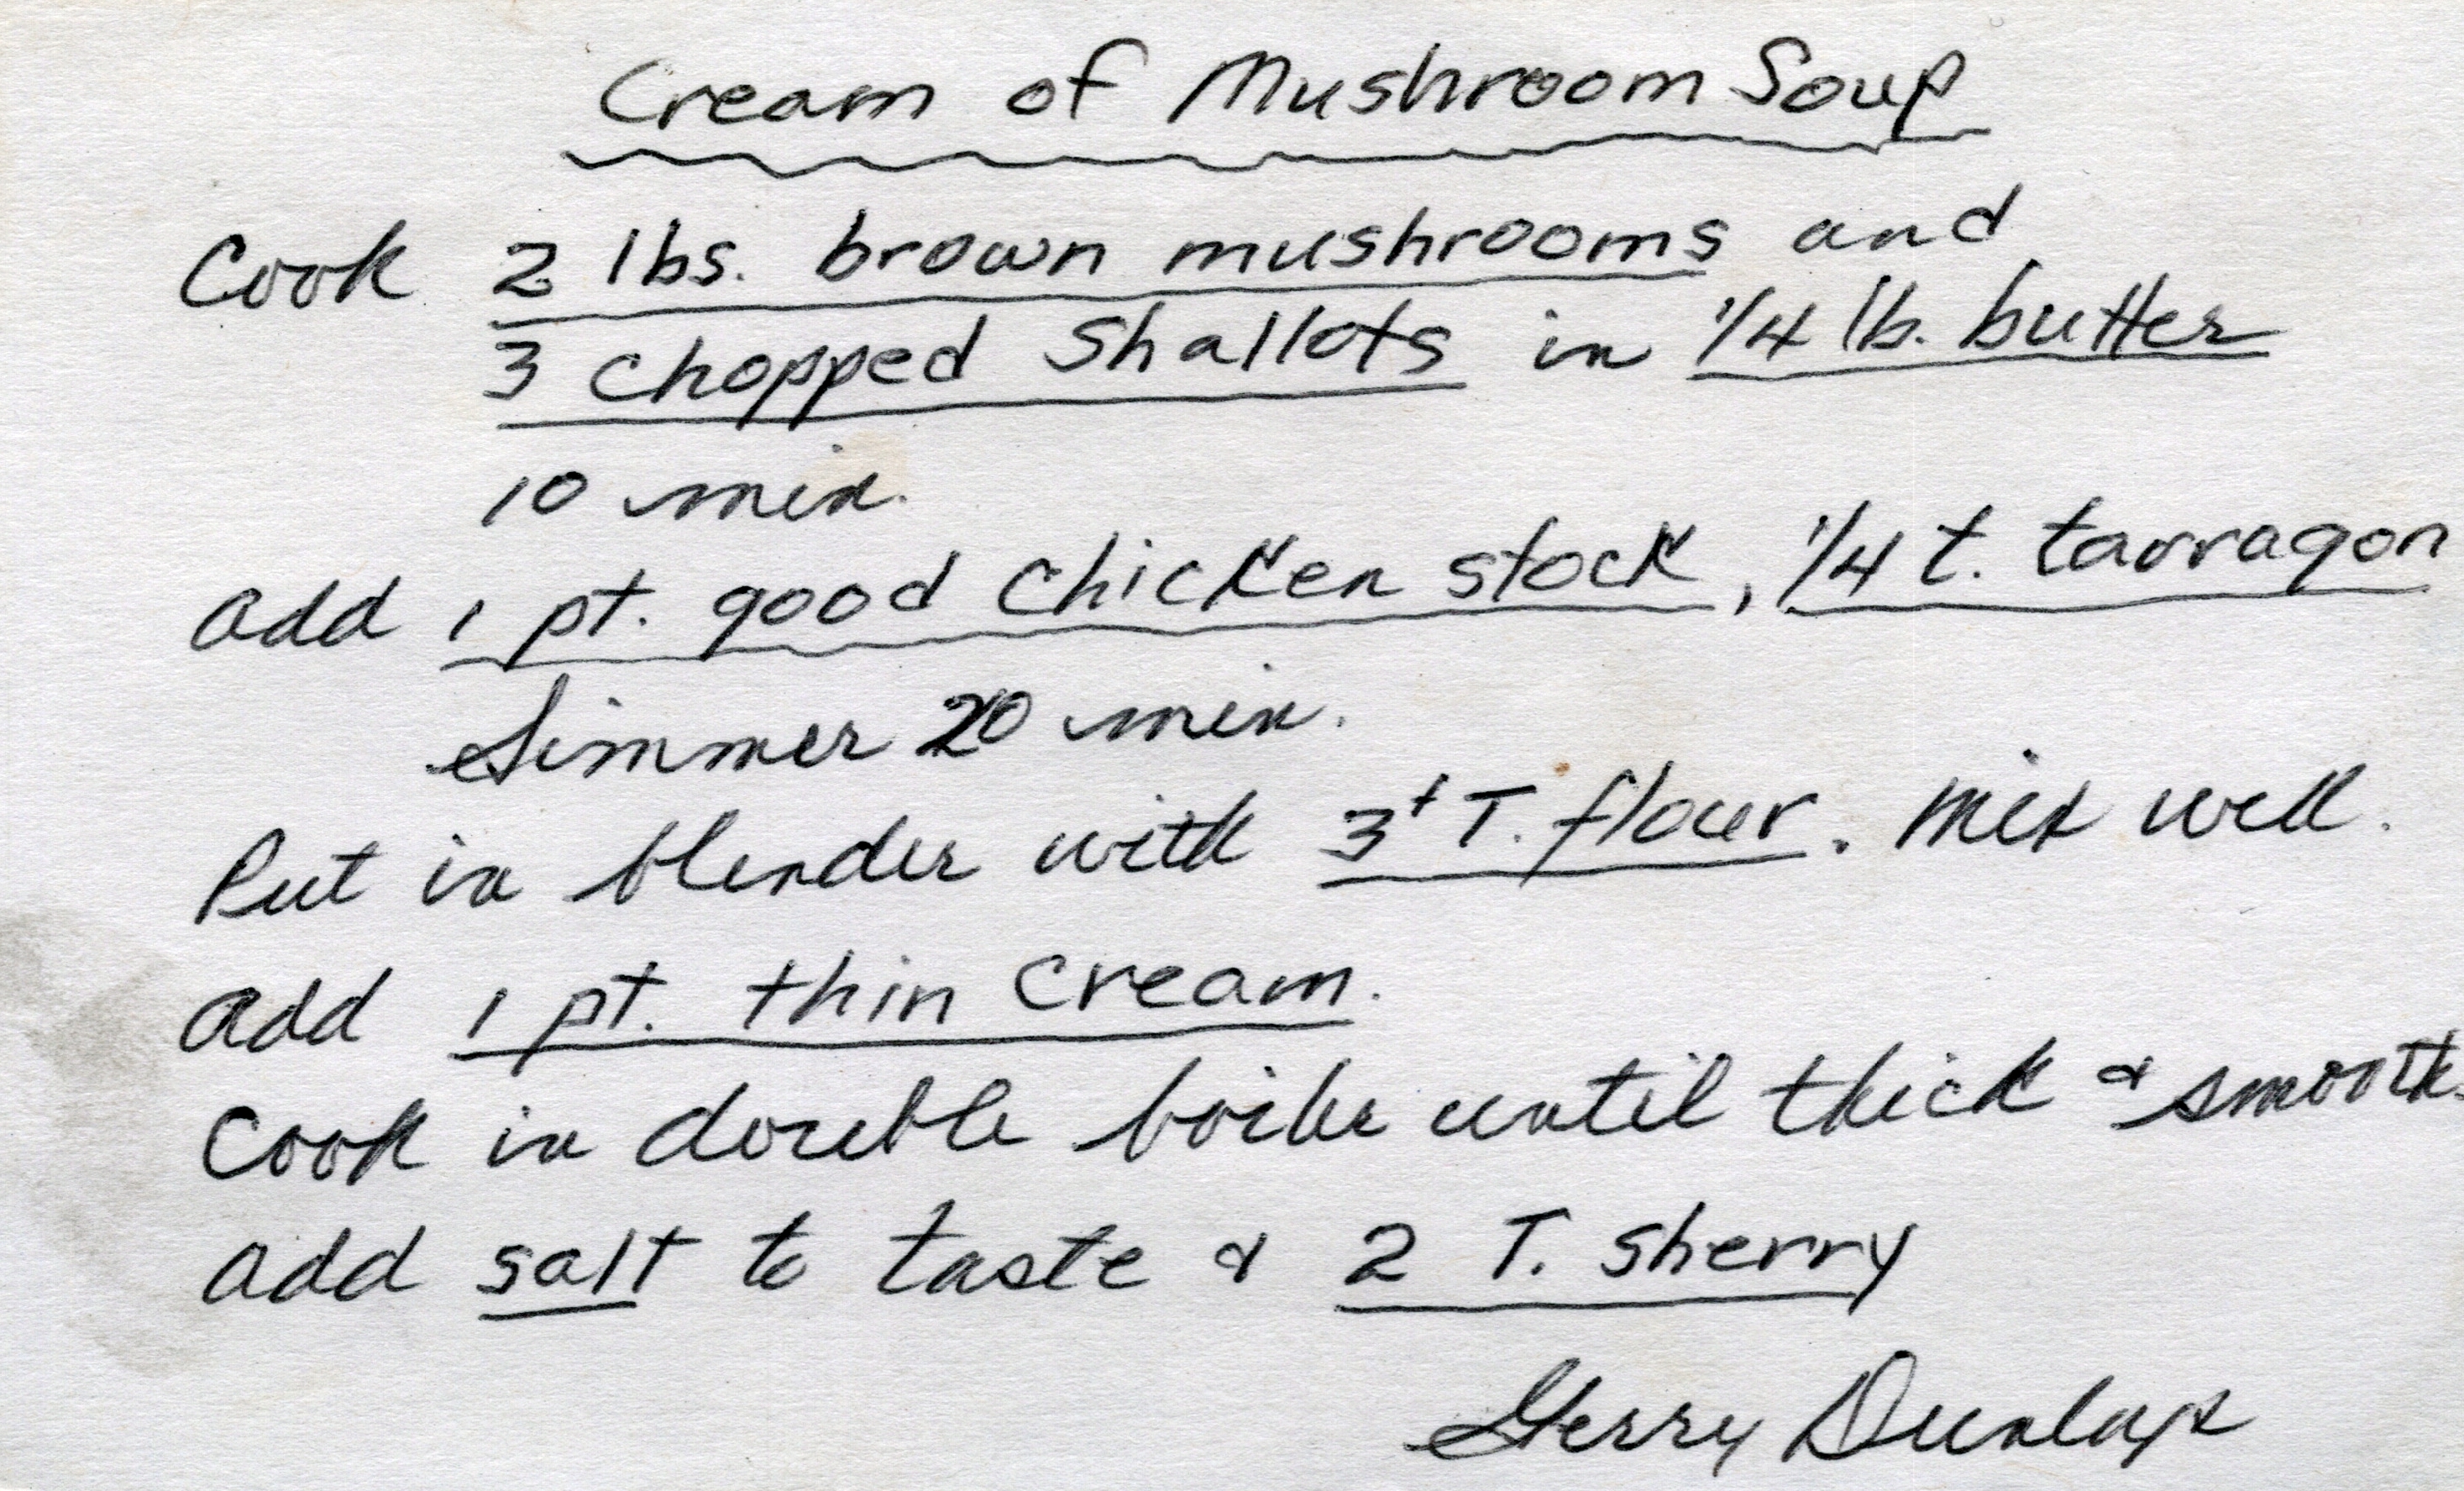 Cream of Mushroom Soup
Cook 2 lbs. brown mushrooms and
3 chopped Shallots in 1/4 lb. butter
10 min.
add 1 pt. good chicken stock, 1/4 t. tarragon
Simmer 20 min.
Put in blender with 3+ T. flour. Mix well.
add 1 pt. thin cream.
Cook in double boiler until thick & smooth.
add salt to taste & 2 T. sherry
Gerry Dunlap